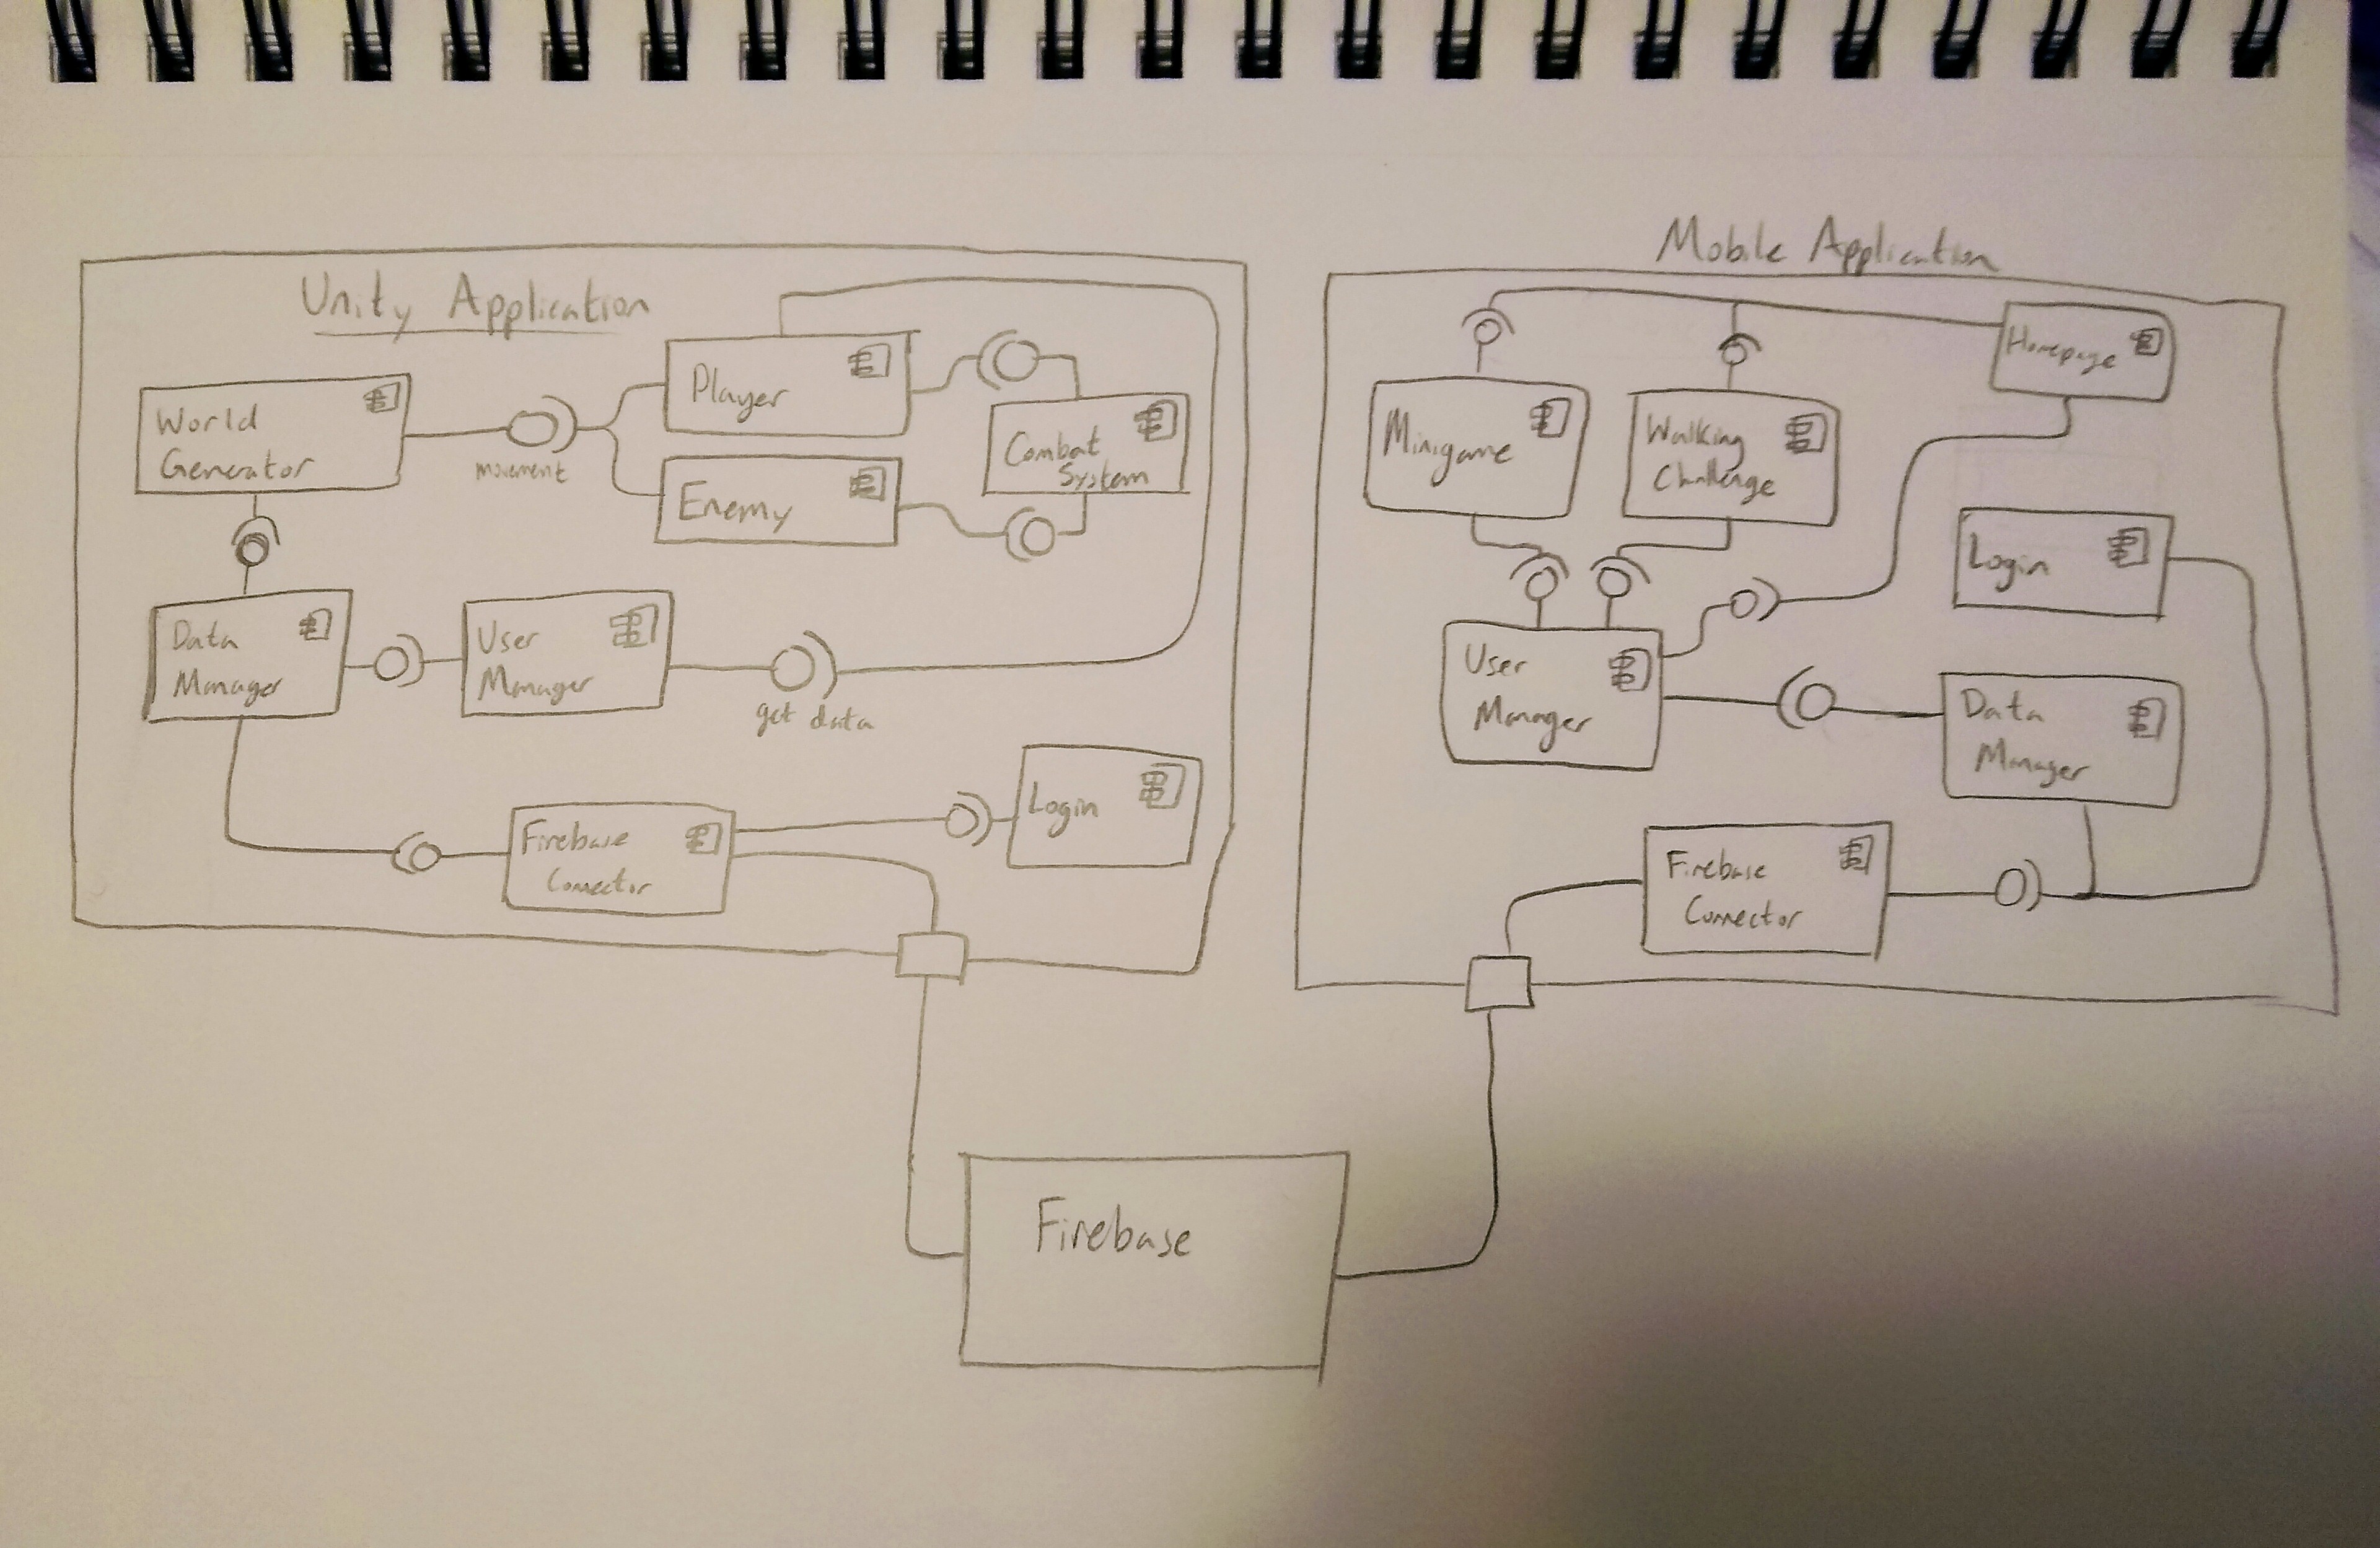 Unity Application
World
Generator
movement
Player
Enemy
Combat
System
Data
Manager
User
Manager
get data
Firebase
Connector
Login
Mobile Application
Minigame
Walking
Challenge
Homepage
Login
User
Manager
Data
Manager
Firebase
Connector
Firebase